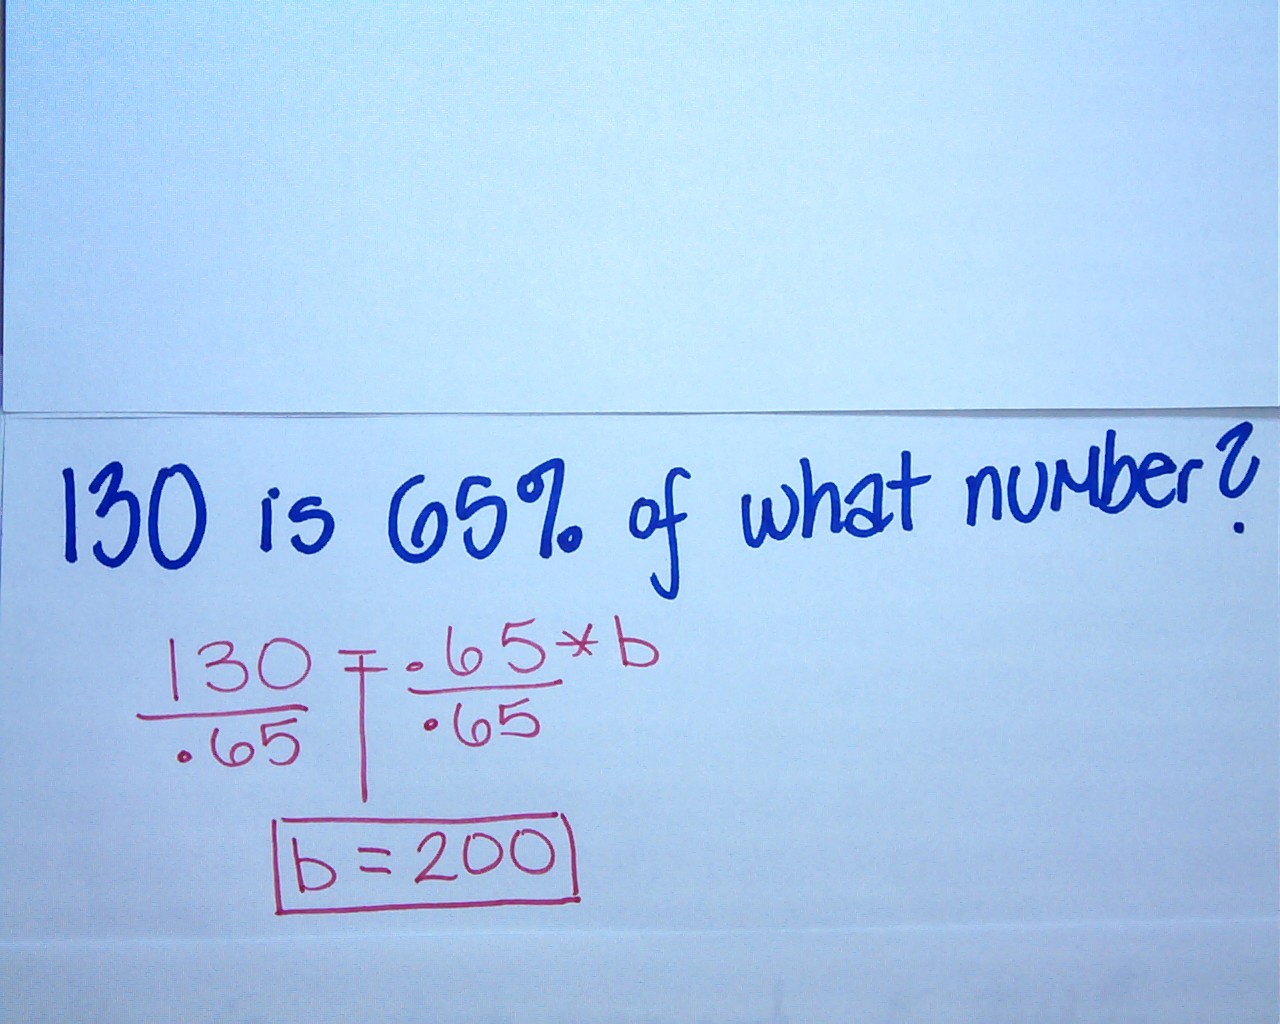 130 is 65% of what number?
130 = .65 * b
.65 .65
b = 200